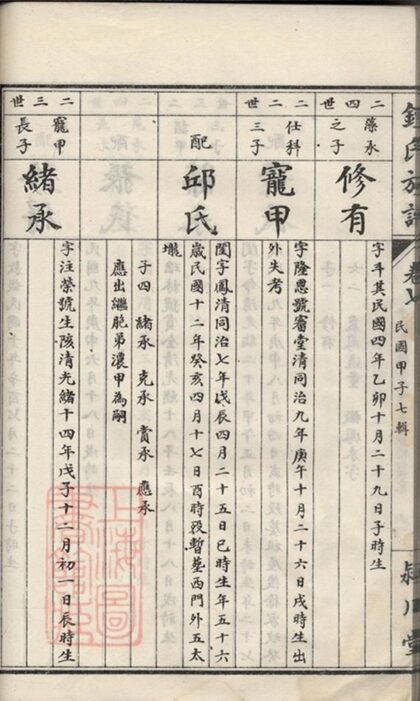 鍾氏族譜
民國甲子七輯
潁川堂
二四世
藻承
之子
修有
字斗其民國四年乙卯十月二十九日子時生
二二世
仕科
三子
寵甲
字隆恩號審堂清同治九年庚午十月二十六日戌時生出
外失考
配
邱氏
閨字鳳清同治七年戊辰四月二十五日巳時生年五十六
歲民國十二年癸亥四月十七日酉時歿暫墓西門外五太
壠
子四 緒承 克承 賞承 應承
應出繼胞弟濃甲為嗣
二三世
寵甲
長子
緒承
字注榮號生陔清光緒十四年戊子十二月初一日辰時生